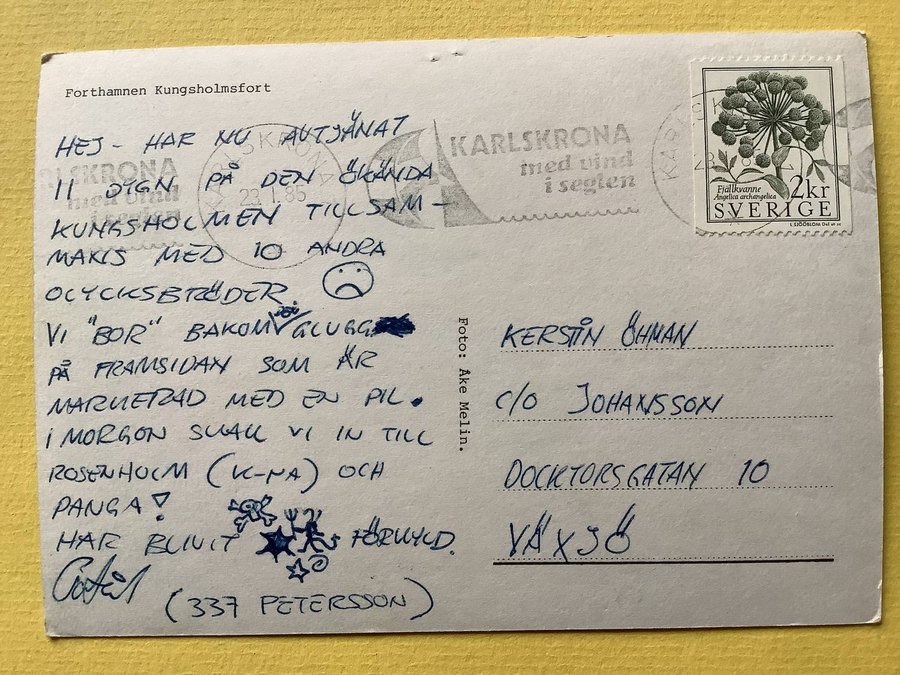 Forthamnen Kungsholmsfort
HEJ - HAR NU AVTJÄNAT
11 DYGN PÅ DEN ÖKÄNDA
KUNGSHOLMEN TILLSAM-
MANS MED 10 ANDRA
OLYCKSBRÖDER
VI "BOR" BAKOM GLUGG
PÅ FRAMSIDAN SOM ÄR
MARKERAD MED EN PIL.
I MORGON SKALL VI IN TILL
ROSENHOLM (K-NA) OCH
PANGA!
HAR BLIVIT FÖRKYLD.
(337 PETERSSON)
KARLSKRONA
med vind
i seglen
KARLSKRONA
23.1.85
KARLSKRONA
med vind
i seglen
Fjällkvanne
Angelica archangelica
2kr
SVERIGE
Foto: Åke Melin.
KERSTIN ÖHMAN
C/O JOHANSSON
DOCKTORSGATAN 10
VÄXJÖ